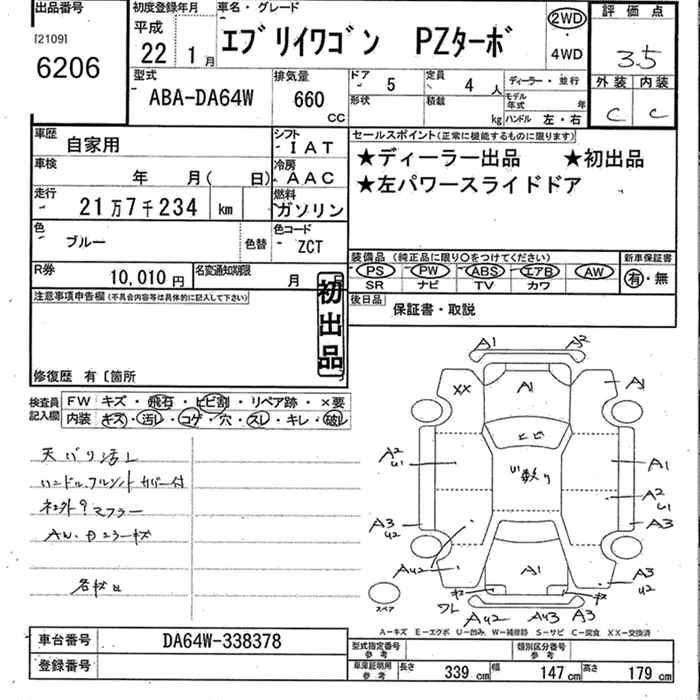 出品番号
[2109]
6206
初度登録年月
平成
22年 1月
車名・グレード
エブリイワゴン PZターボ
2WD
・
4WD
評価点
3.5
外装 内装
C C
型式
ABA-DA64W
排気量
660
CC
ドア 5
形状
定員 4人
積載 kg
ディーラー・並行
モデル年式 年
ハンドル 左・右
車歴 自家用
シフト
IAT
車検 年 月( 日)
冷房
AAC
走行 21万7千234 km
燃料
ガソリン
色 ブルー
色替
色コード
ZCT
R券 10,010円
名変通知期限 月
セールスポイント(正常に機能するものに限ります)
★ディーラー出品 ★初出品
★左パワースライドドア
装備品(純正品に限り○をつけてください)
PS PW ABS エアB AW
SR ナビ TV カワ
新車保証書
有・無
後日品
保証書・取説
注意事項申告欄(不具合内容等は具体的に記入して下さい)
初出品
修復歴 有〔箇所 〕
検査員記入欄
FW キズ・飛石・ヒビ割・リペア跡・×要
内装 キズ・汚レ・コゲ・穴・スレ・キレ・破レ
天バリ汚レ
ハンドル,フルシートカバー付
社外?マフラー
A1 A2
XX A1 A1
ヒビ
A2
U1
A1
A2
U1
A3
U2
A3
AU2 A1 A3
U2
ワレ AU2 AU3 A3
スペア
A−キズ E−エクボ U−凹み W−補修跡 S−サビ C−腐食 XX−交換済
車台番号 DA64W-338378
登録番号
型式指定番号
参考
類別区分番号
参考
車庫証明用
参考
長さ 339 cm 幅 147 cm 高さ 179 cm